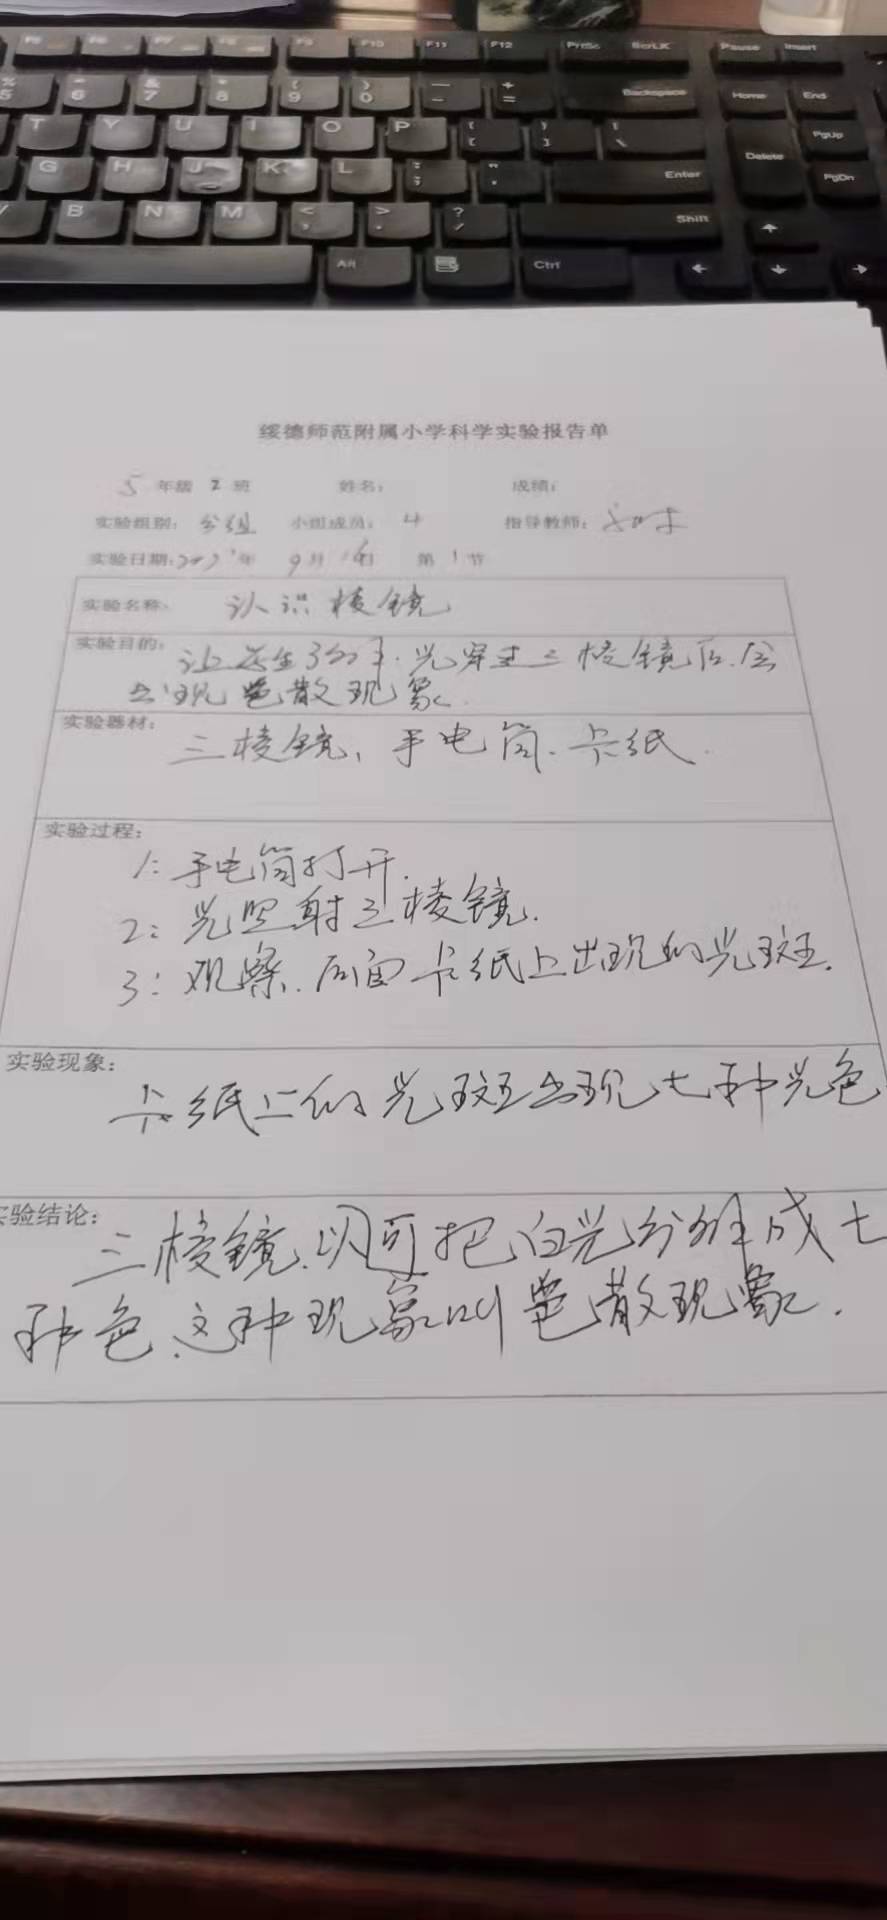 F5 F6 F7 F8 F9 F10 F11 F12 PrtSc ScrLK Pause Insert
% 5 ^ 6 & 7 * 8 ( 9 ) 0 — - + = Backspace Home End
T Y U I O P { [ } ] | \ Delete PgUp PgDn
G H J K L : ; " ' Enter
V B N M < , > . ? / Shift
Alt Ctrl
绥德师范附属小学科学实验报告单
5 年级 2 班 姓名: 成绩:
实验组别: 分组 小组成员: 4 指导教师:
实验日期: 年 9 月 日 第 1 节
实验名称: 认识棱镜
实验目的: 让学生了解,光穿过三棱镜后,会
出现色散现象.
实验器材: 三棱镜、手电筒、卡纸.
实验过程:
1: 手电筒打开.
2: 光照射三棱镜.
3: 观察.后面卡纸上出现的光斑.
实验现象:
卡纸上的光斑出现七种光色
实验结论:
三棱镜.可把白光分解成七
种色.这种现象叫色散现象.